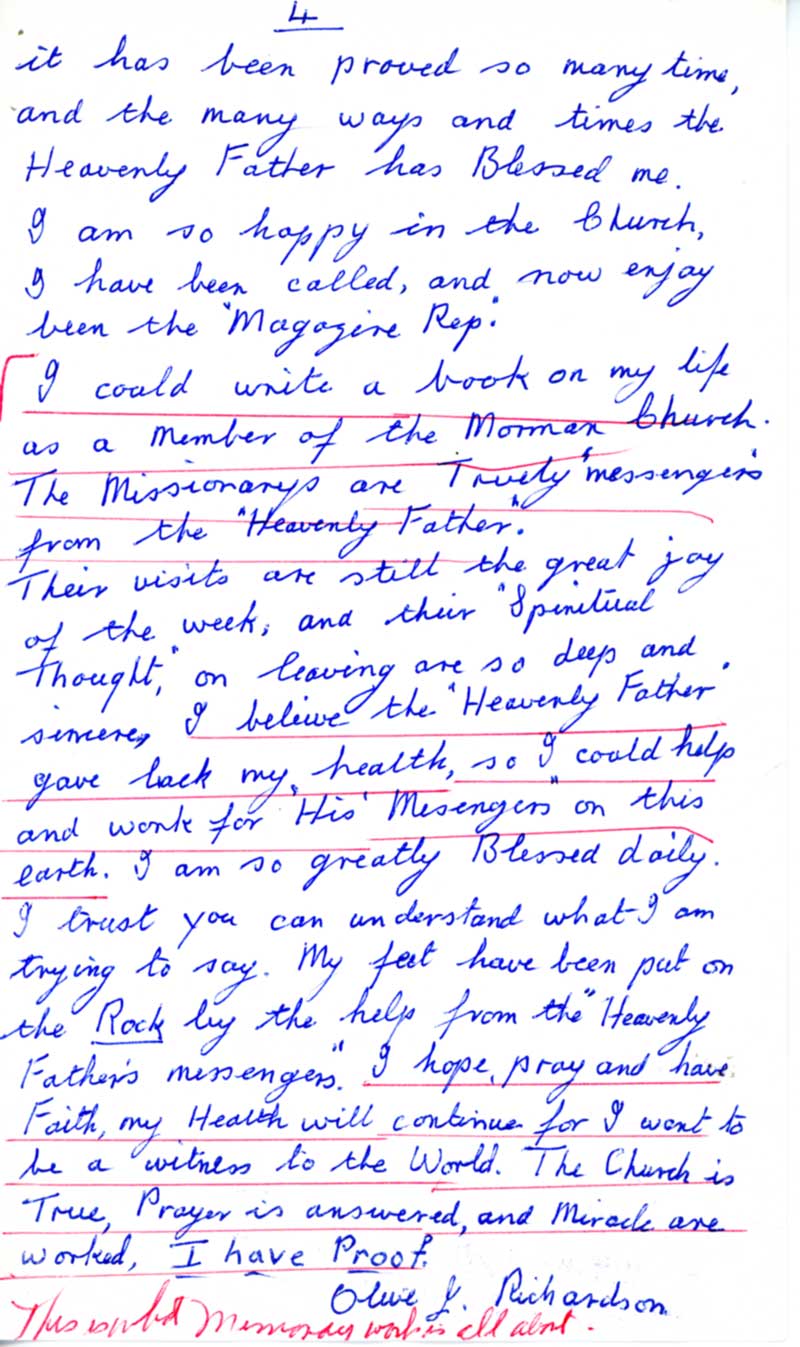 4
it has been proved so many time,
and the many ways and times the
Heavenly Father has Blessed me.
I am so happy in the Church,
I have been called, and now enjoy
been the "Magazine Rep."
I could write a book on my life
as a member of the Morman Church.
The Missionarys are Truely "messengers
from the "Heavenly Father".
Their visits are still the great joy
of the week, and their "Spiritual
Thought," on leaving are so deep and
sincere, I beleive the "Heavenly Father"
gave back my health, so I could help
and work for "His' Mesengers" on this
earth. I am so greatly Blessed daily.
I trust you can understand what I am
trying to say. My feet have been put on
the Rock by the help from the "Heavenly
Father's messengers." I hope, pray and have
Faith, my Health will continue for I want to
be a witness to the World. The Church is
True, Prayer is answered, and Miracle are
worked, I have Proof.
Olive J. Richardson
This is what Missionary work is all about.